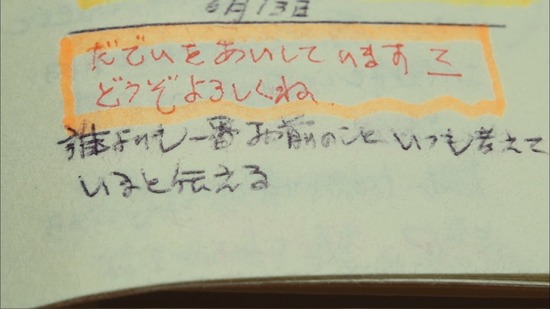 6月13日
だでぃをあいしています
どうぞよろしくね
誰よりも一番お前のこといつも考えて
いると伝える